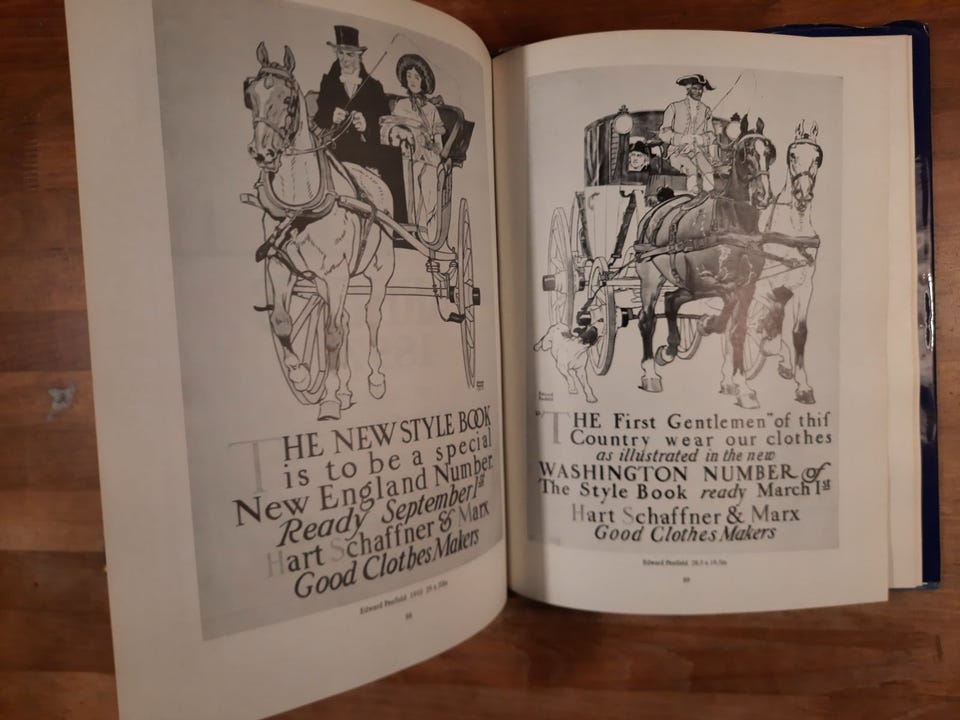 THE NEW STYLE BOOK
is to be a special
New England Number.
Ready September 1st
Hart Schaffner & Marx
Good Clothes Makers
Edward Penfield
"THE First Gentlemen" of this
Country wear our clothes
as illustrated in the new
WASHINGTON NUMBER of
The Style Book ready March 1st
Hart Schaffner & Marx
Good Clothes Makers
Edward Penfield
Edward Penfield